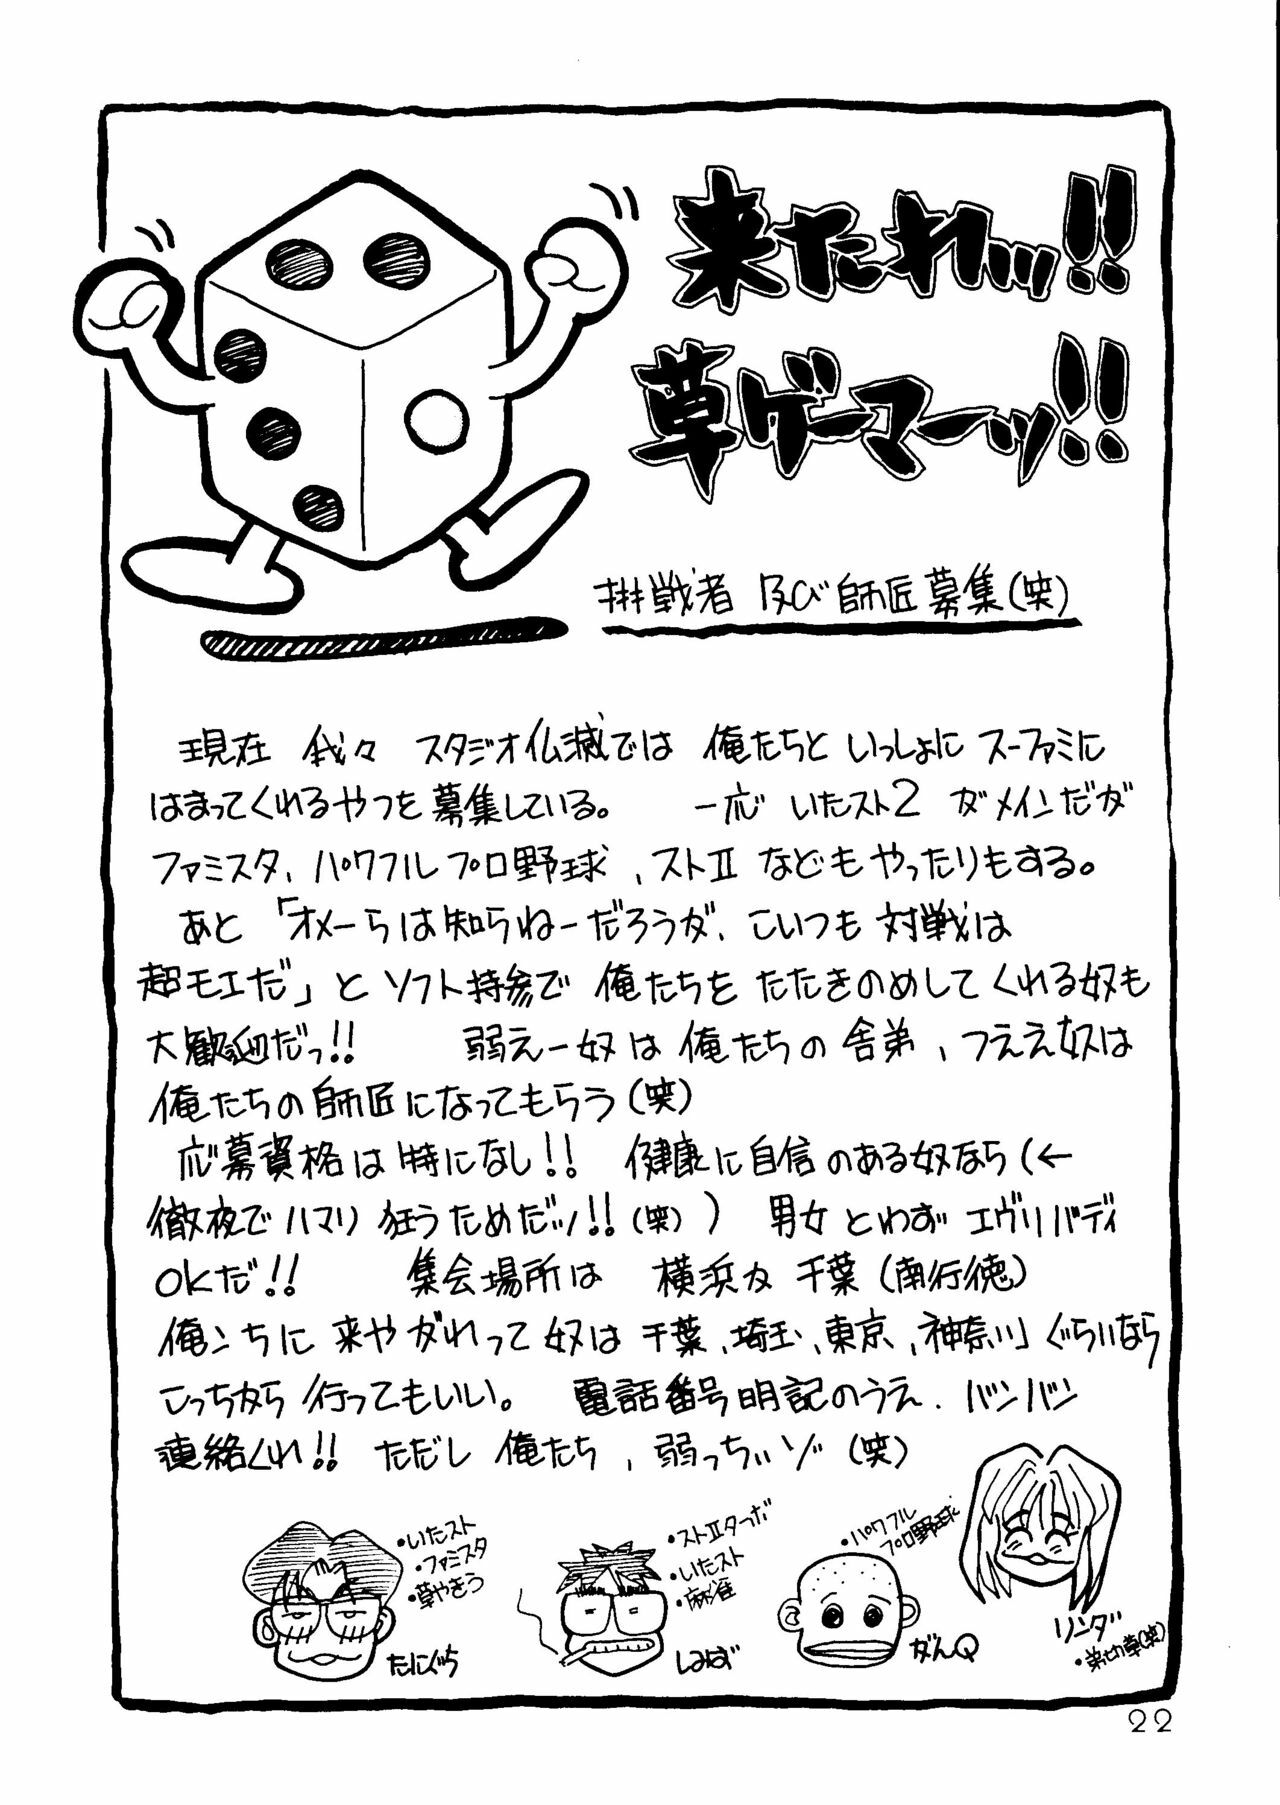 来たれッ!!
草ゲーマーッ!!
挑戦者 及び師匠募集(笑)
現在 我々 スタジオ仏滅では 俺たちと いっしょに スーファミに
はまってくれるやつを募集している。 一応 いたスト2 がメインだが
ファミスタ、パワフルプロ野球、ストⅡ などもやったりもする。
あと「オメーらは知らねーだろうが、こいつも 対戦は
超モエだ」と ソフト持参で 俺たちを たたきのめしてくれる奴も
大歓迎だっ!! 弱えー奴は俺たちの舎弟、つええ奴は
俺たちの師匠になってもらう(笑)
応募資格は特になし!! 健康に自信のある奴なら(←
徹夜でハマリ狂うためだッ!!(笑)) 男女とわず エヴリバディ
OKだ!! 集会場所は 横浜か 千葉(南行徳)
俺ンちに 来やがれって奴は 千葉、埼玉、東京、神奈川ぐらいなら
こっちから行ってもいい。 電話番号明記のうえ、バンバン
連絡くれ!! ただし 俺たち、弱っちぃゾ(笑)
・いたスト
・ファミスタ
・草やきう
たにぐち
・ストⅡターボ
・いたスト
・麻雀
しみず
・パワフル
プロ野球
がんQ
リンダ
・弟切草(笑)
22